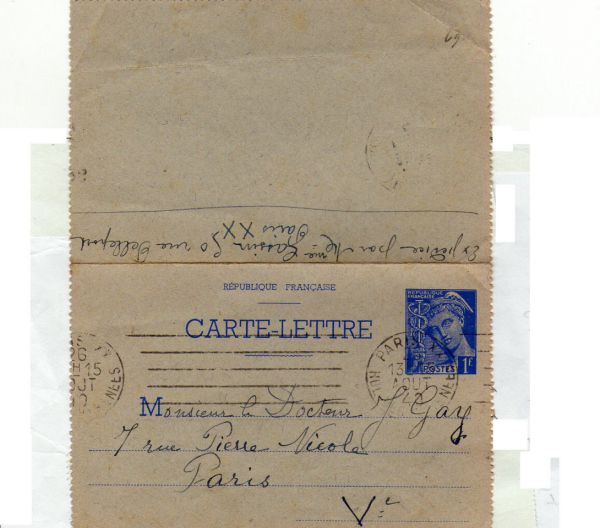 69
Expédiée par Mme Gaissin 50 rue Pelleport
Paris XX
RÉPUBLIQUE FRANÇAISE
CARTE-LETTRE
RÉPUBLIQUE
FRANÇAISE
POSTES 1F
PARIS
13
AOUT
Monsieur le Docteur J. Gay
7 rue Pierre Nicole
Paris
Ve